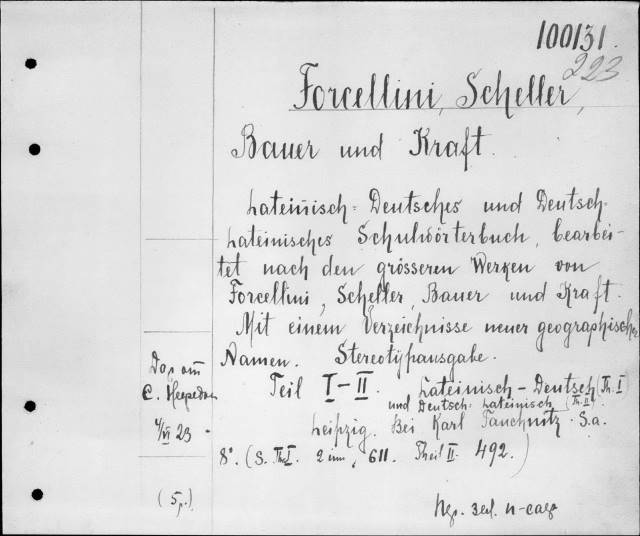 100131.
223
Forcellini, Scheller,
Bauer und Kraft.
Lateinisch-Deutsches und Deutsch-
Lateinisches Schulwörterbuch, bearbei-
tet nach den grösseren Werken von
Forcellini, Scheller, Bauer und Kraft.
Mit einem Verzeichnisse neuer geographischer
Namen. Stereotypausgabe.
Teil I-II. Lateinisch-Deutsch (Th. I
und Deutsch-Lateinisch (Th. II).
Leipzig. Bei Karl Tauchnitz. S.a.
8°. (S. Th.I. 2 , 611. Theil II. 492.)
4/VI 23.
(5p.)